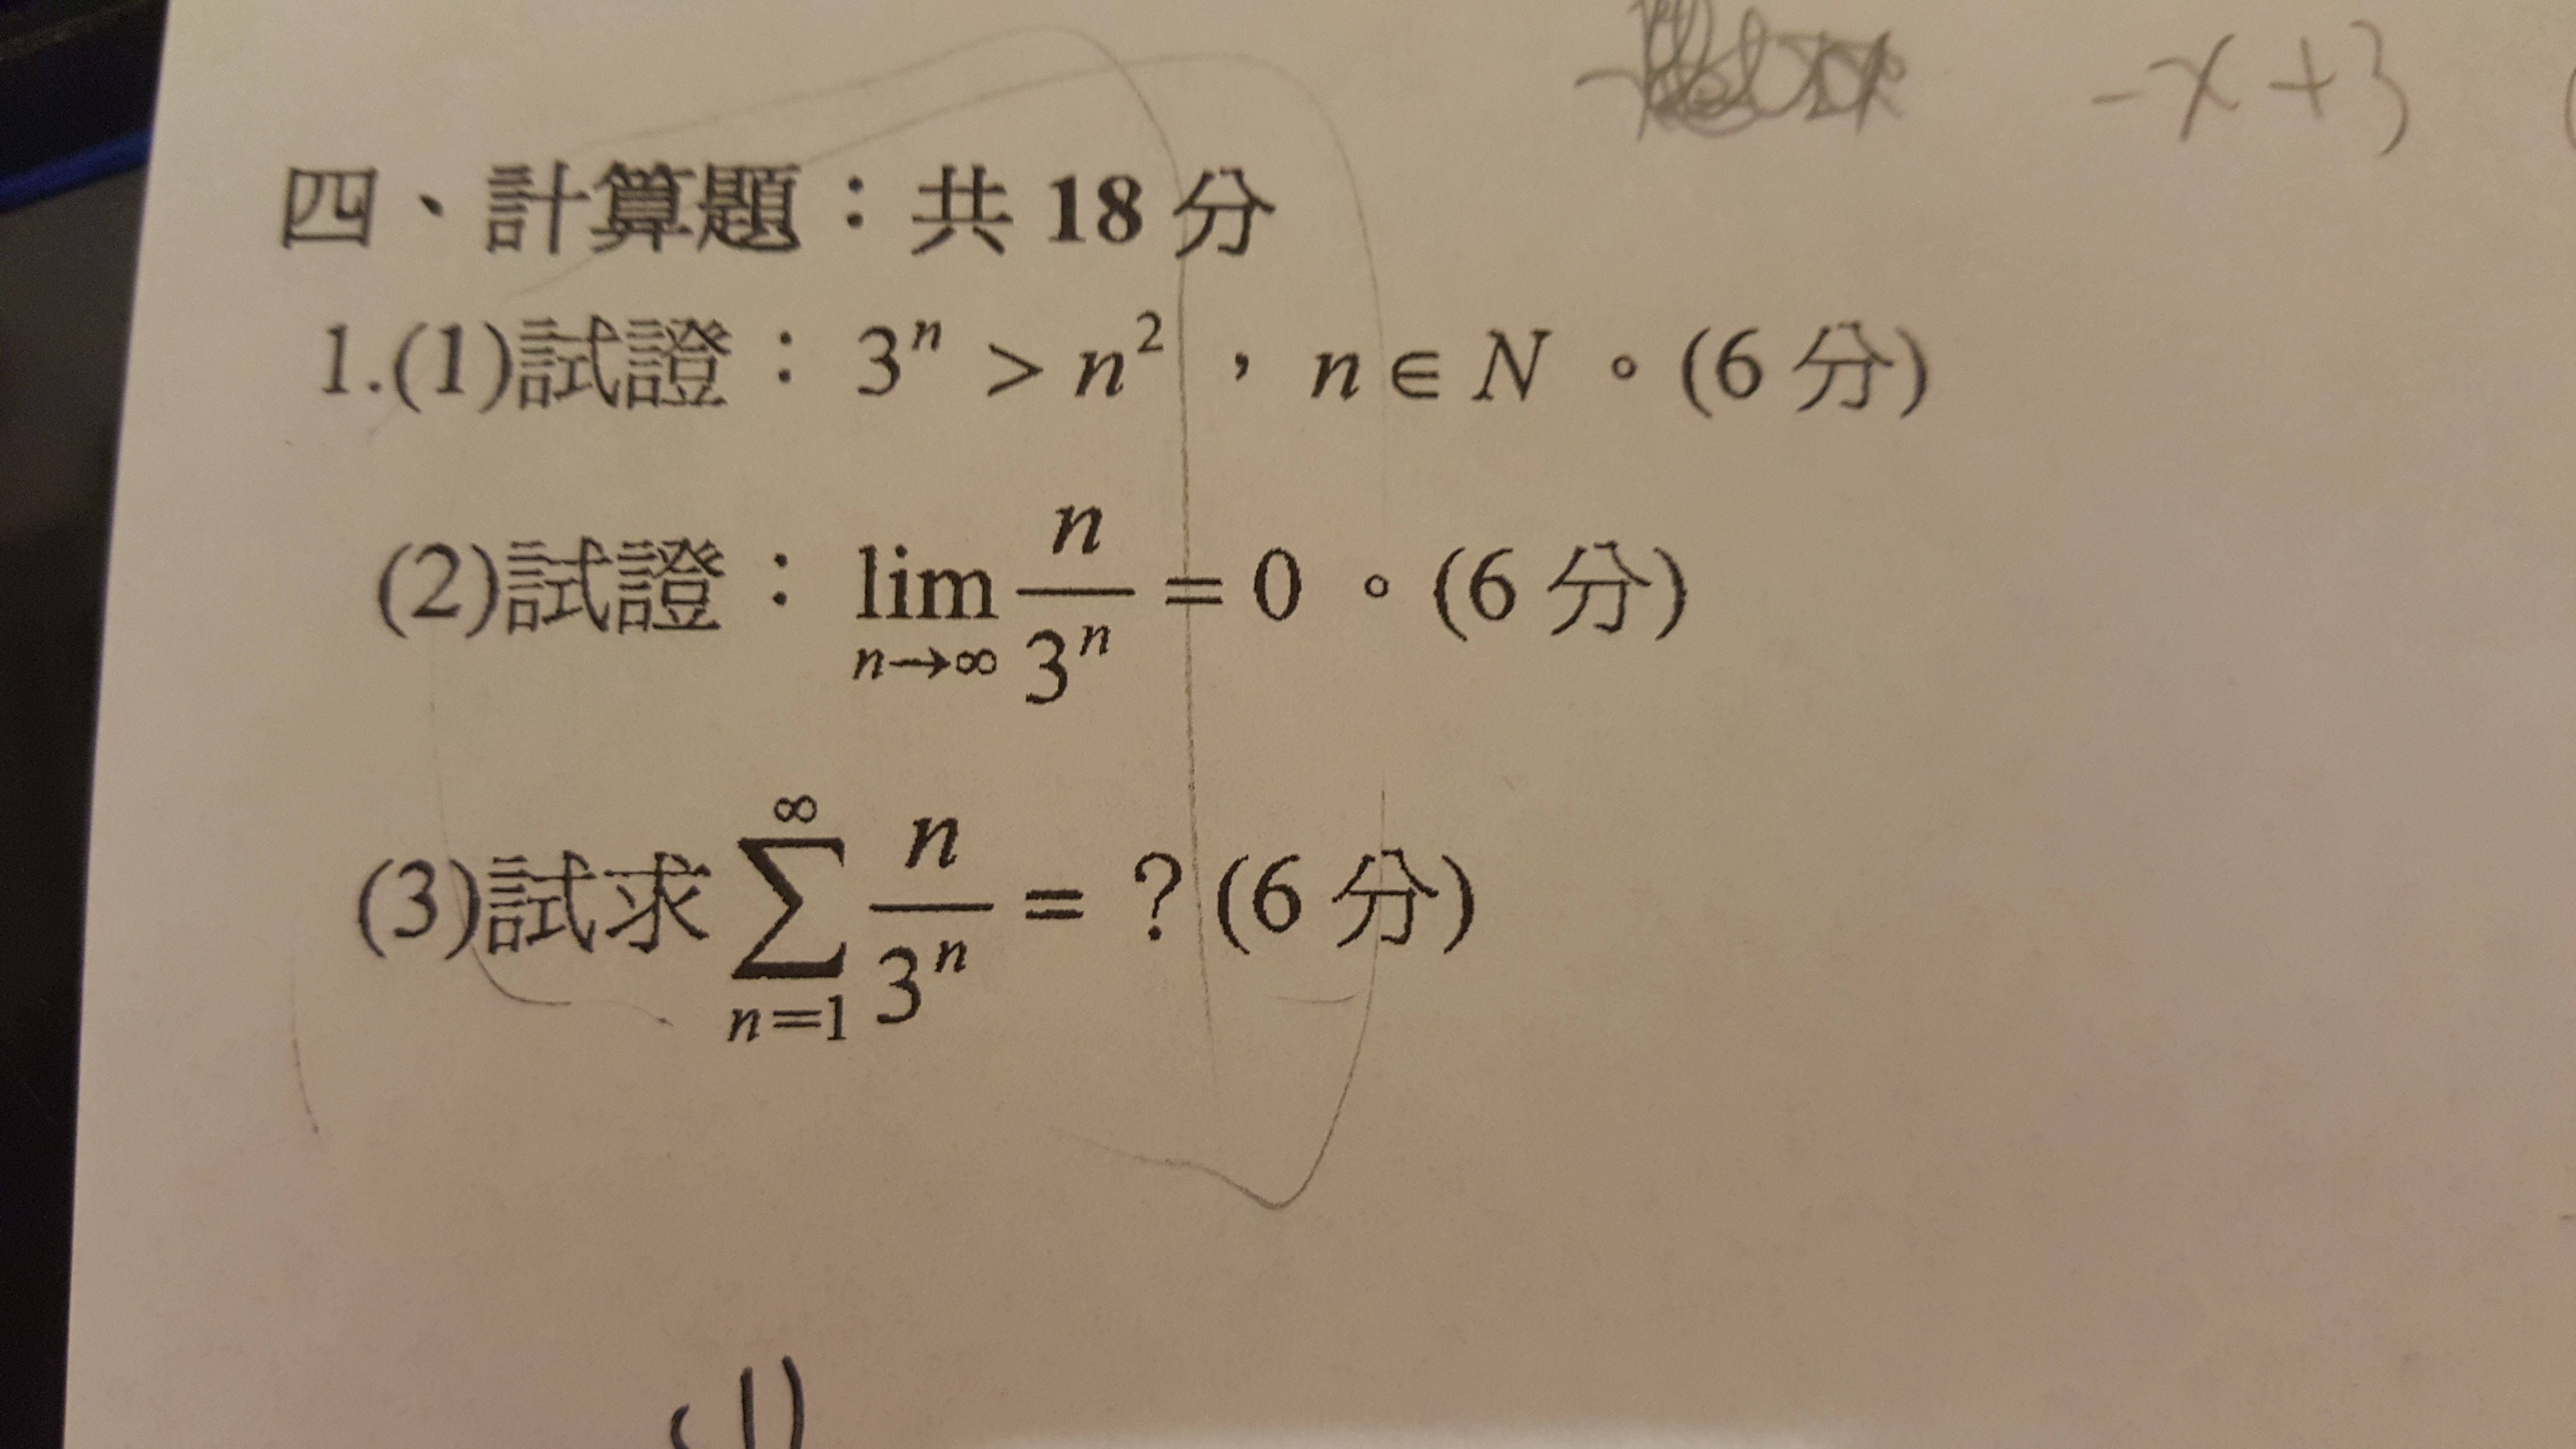 -x+3
四、計算題：共 18 分
1.(1)試證：3ⁿ > n²，n∈N。(6 分)
(2)試證：lim_{n→∞} n/3ⁿ = 0。(6 分)
(3)試求 ∑_{n=1}^{∞} n/3ⁿ = ？(6 分)